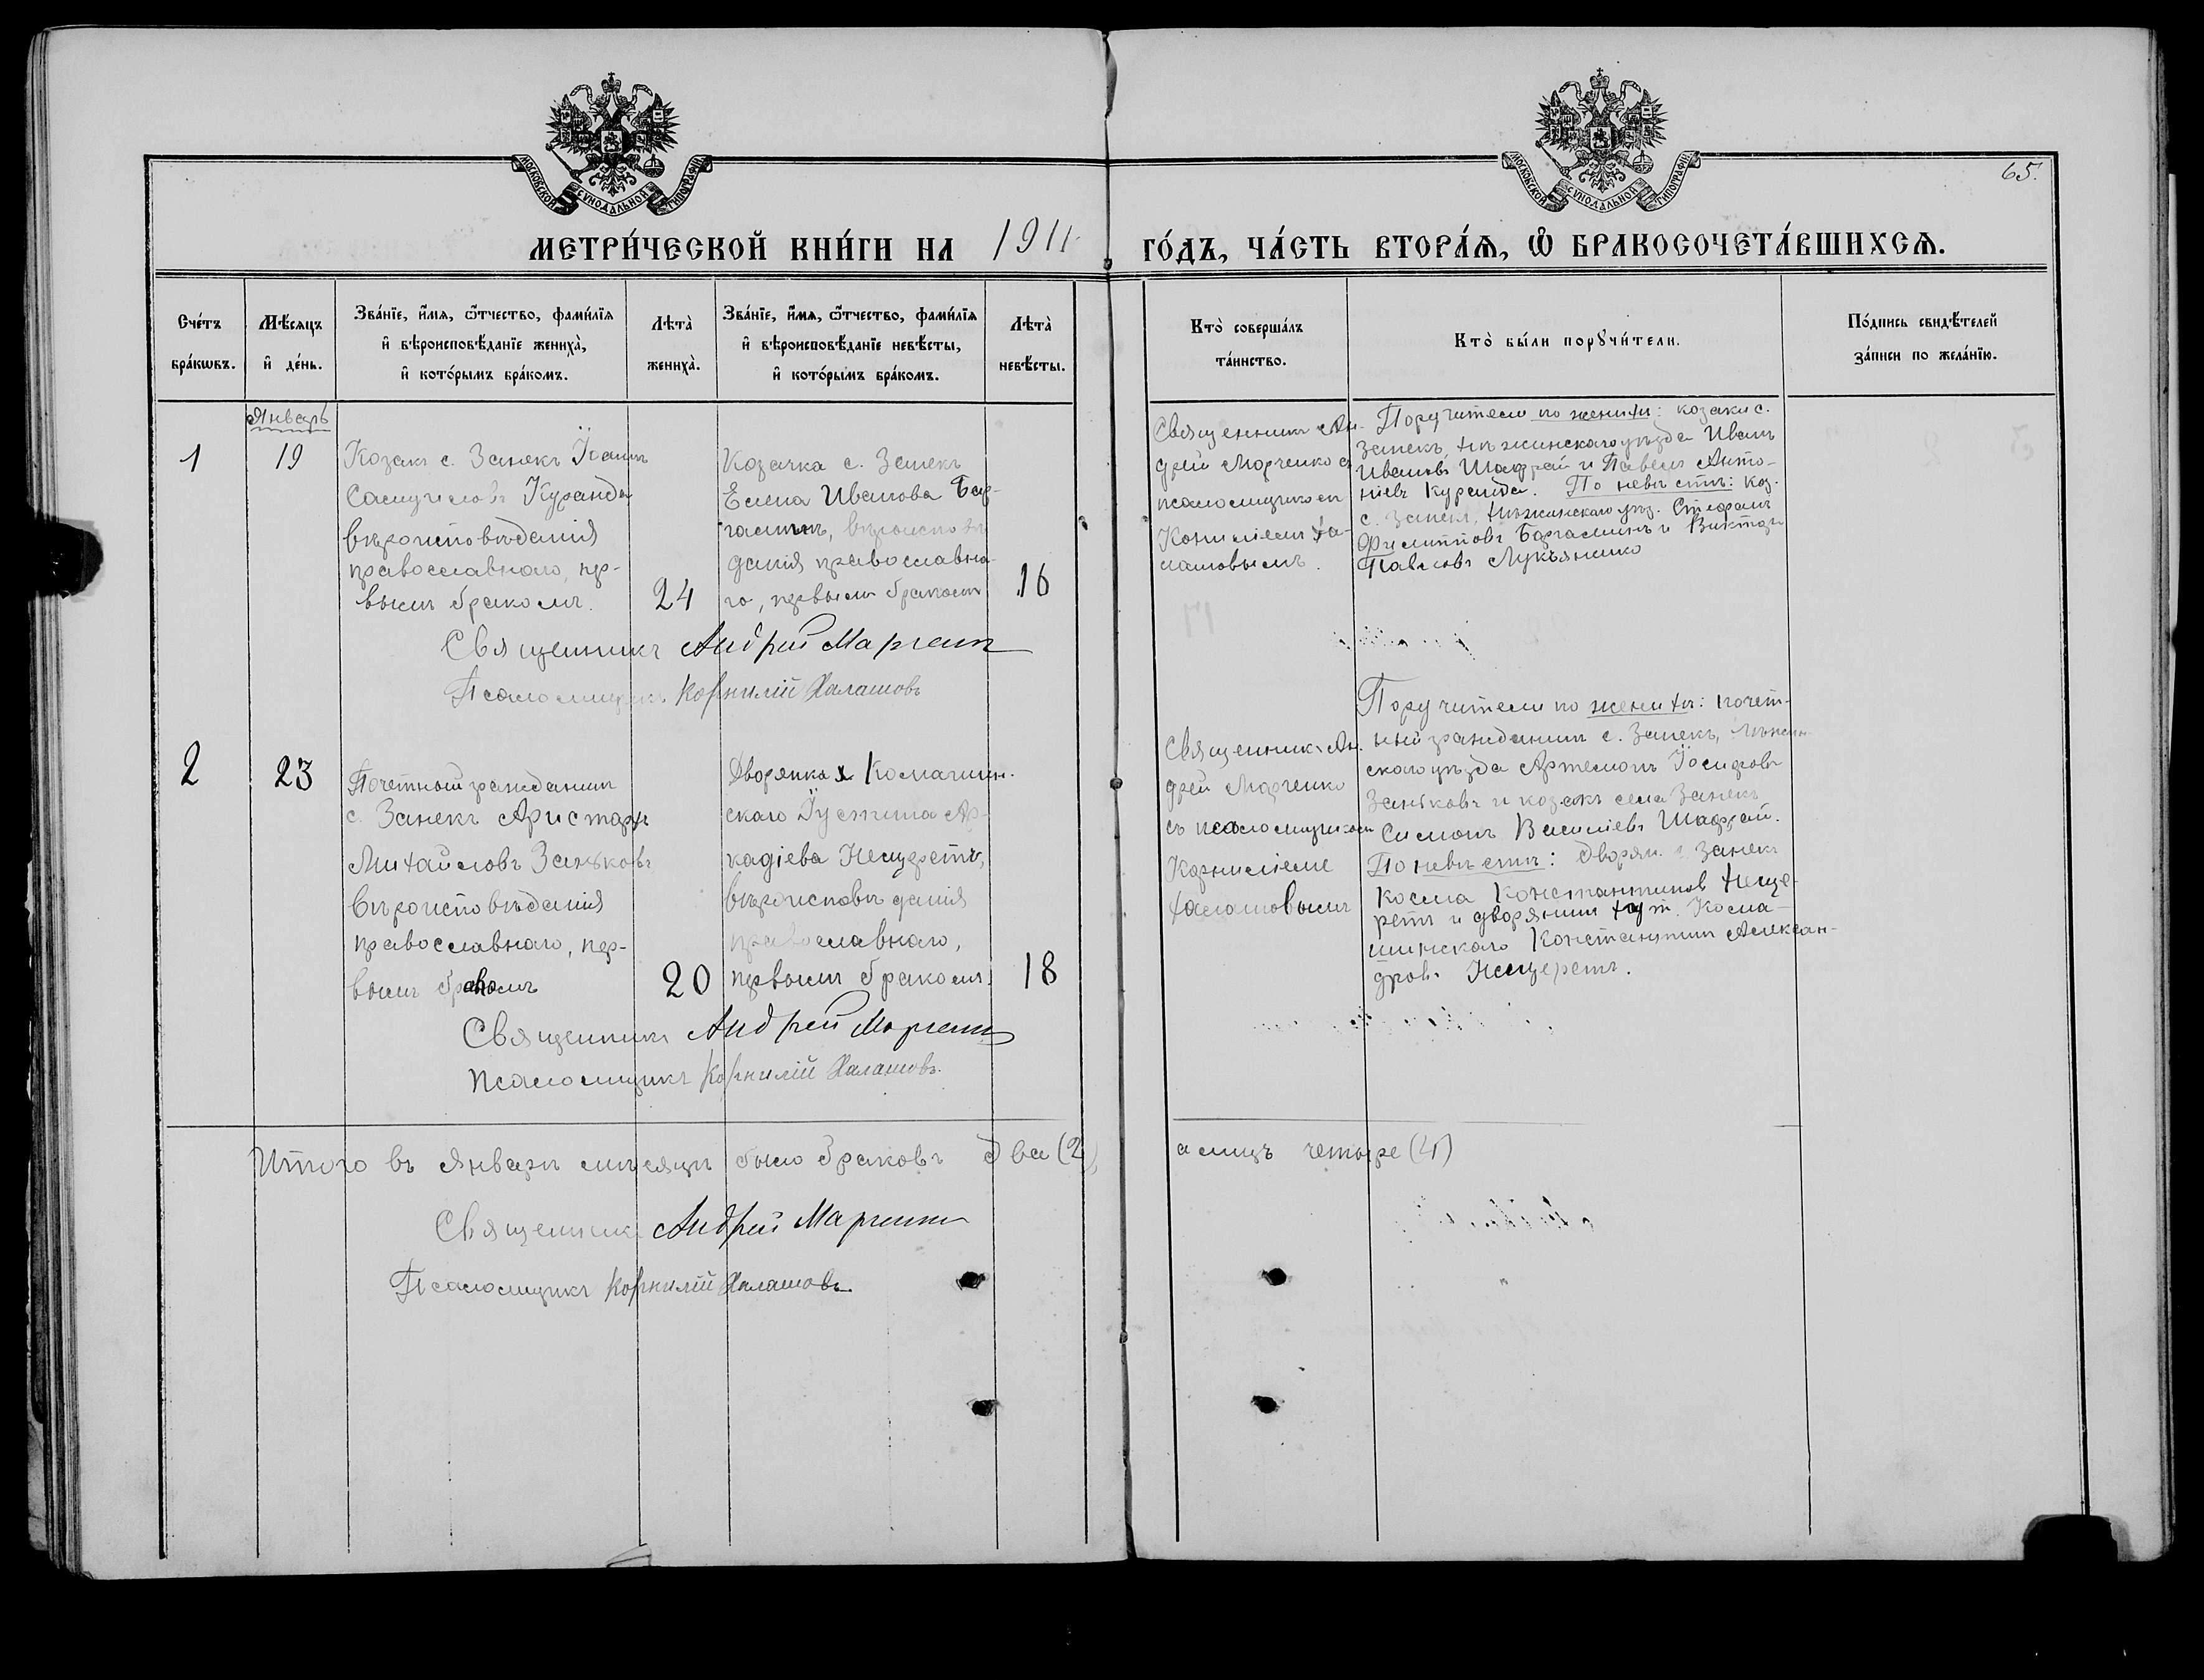 МОСКОВСКОЙ СѴНОДАЛЬНОЙ ТИПОГРАФІИ
МОСКОВСКОЙ СѴНОДАЛЬНОЙ ТИПОГРАФІИ
65.
МЕТРИ́ЧЕСКОЙ КНИ́ГИ НА 1911 ГО́ДЪ, ЧА́СТЬ ВТОРА́Я, Ѡ҆ БРАКОСОЧЕТА́ВШИХСЯ.
Сче́тъ бра́кѡвъ.
Мѣ́сяцъ и҆ де́нь.
Зва́нїе, и҆́мя, ѻ҆́тчество, фами́лїя
и҆ вѣроисповѣ́данїе жениха̀,
и҆ кото́рымъ бра́комъ.
Лѣта̀ жениха̀.
Зва́нїе, и҆́мя, ѻ҆́тчество, фами́лїя
и҆ вѣроисповѣ́данїе невѣ́сты,
и҆ кото́рымъ бра́комъ.
Лѣта̀ невѣ́сты.
Кто̀ соверша́лъ
та́инство.
Кто̀ бы́ли порꙋчи́тели.
По́дпись свидѣ́телей
за́писи по жела́нїю.
Январь
1
19
Козакъ с. Занекъ Іоаннъ
Самуиловъ Куранда
вѣроисповѣданія
православнаго, пер-
вымъ бракомъ.
24
Козачка с. Занекъ
Елена Иванова Бар-
гаминъ, вѣроисповѣ
данія православна-
го, первымъ бракомъ
16
Священникъ Ан-
дрей Марченко съ
псаломщикомъ
Корниліемъ Ха-
лашовымъ.
Поручители по женихѣ: козаки с.
Занекъ, Нѣжинскаго уѣзда Иванъ
Ивановъ Шафрай и Павелъ Анто-
ніевъ Куранда. По невѣстѣ: коз.
с. Занекъ, Нѣжинскаго уѣз. Стефанъ
Филипповъ Баргаминъ и Викторъ
Павловъ Лукъяненко
Священникъ Андрей Марченко
Псаломщикъ Корнилій Халашовъ
2
23
Почетный гражданинъ
с. Занекъ Аристархъ
Михайловъ Заньковъ
вѣроисповѣданія
православнаго, пер-
вымъ бракомъ
20
Дворянка х. Комашин-
скаго Іустина Ар-
кадіева Нещеретъ,
вѣроисповѣданія
православнаго,
первымъ бракомъ.
18
Священникъ Ан-
дрей Марченко
съ псаломщикомъ
Корниліемъ
Халашовымъ
Поручители по женихѣ: почет-
ный гражданинъ с. Занекъ, Нѣжин-
скаго уѣзда Артемонъ Іосифовъ
Заньковъ и козакъ села Занекъ
Симонъ Василіевъ Шафрай.
По невѣстѣ: дворян. с. Занекъ
Косма Константиновъ Неще-
ретъ и дворянинъ хут. Кома-
шинскаго Константинъ Алексан-
дровъ Нещеретъ.
Священникъ Андрей Марченко
Псаломщикъ Корнилій Халашовъ.
Итого въ январѣ мѣсяцѣ было браковъ два (2), а лицъ четыре (4)
Священникъ Андрей Марченко
Псаломщикъ Корнилій Халашовъ.